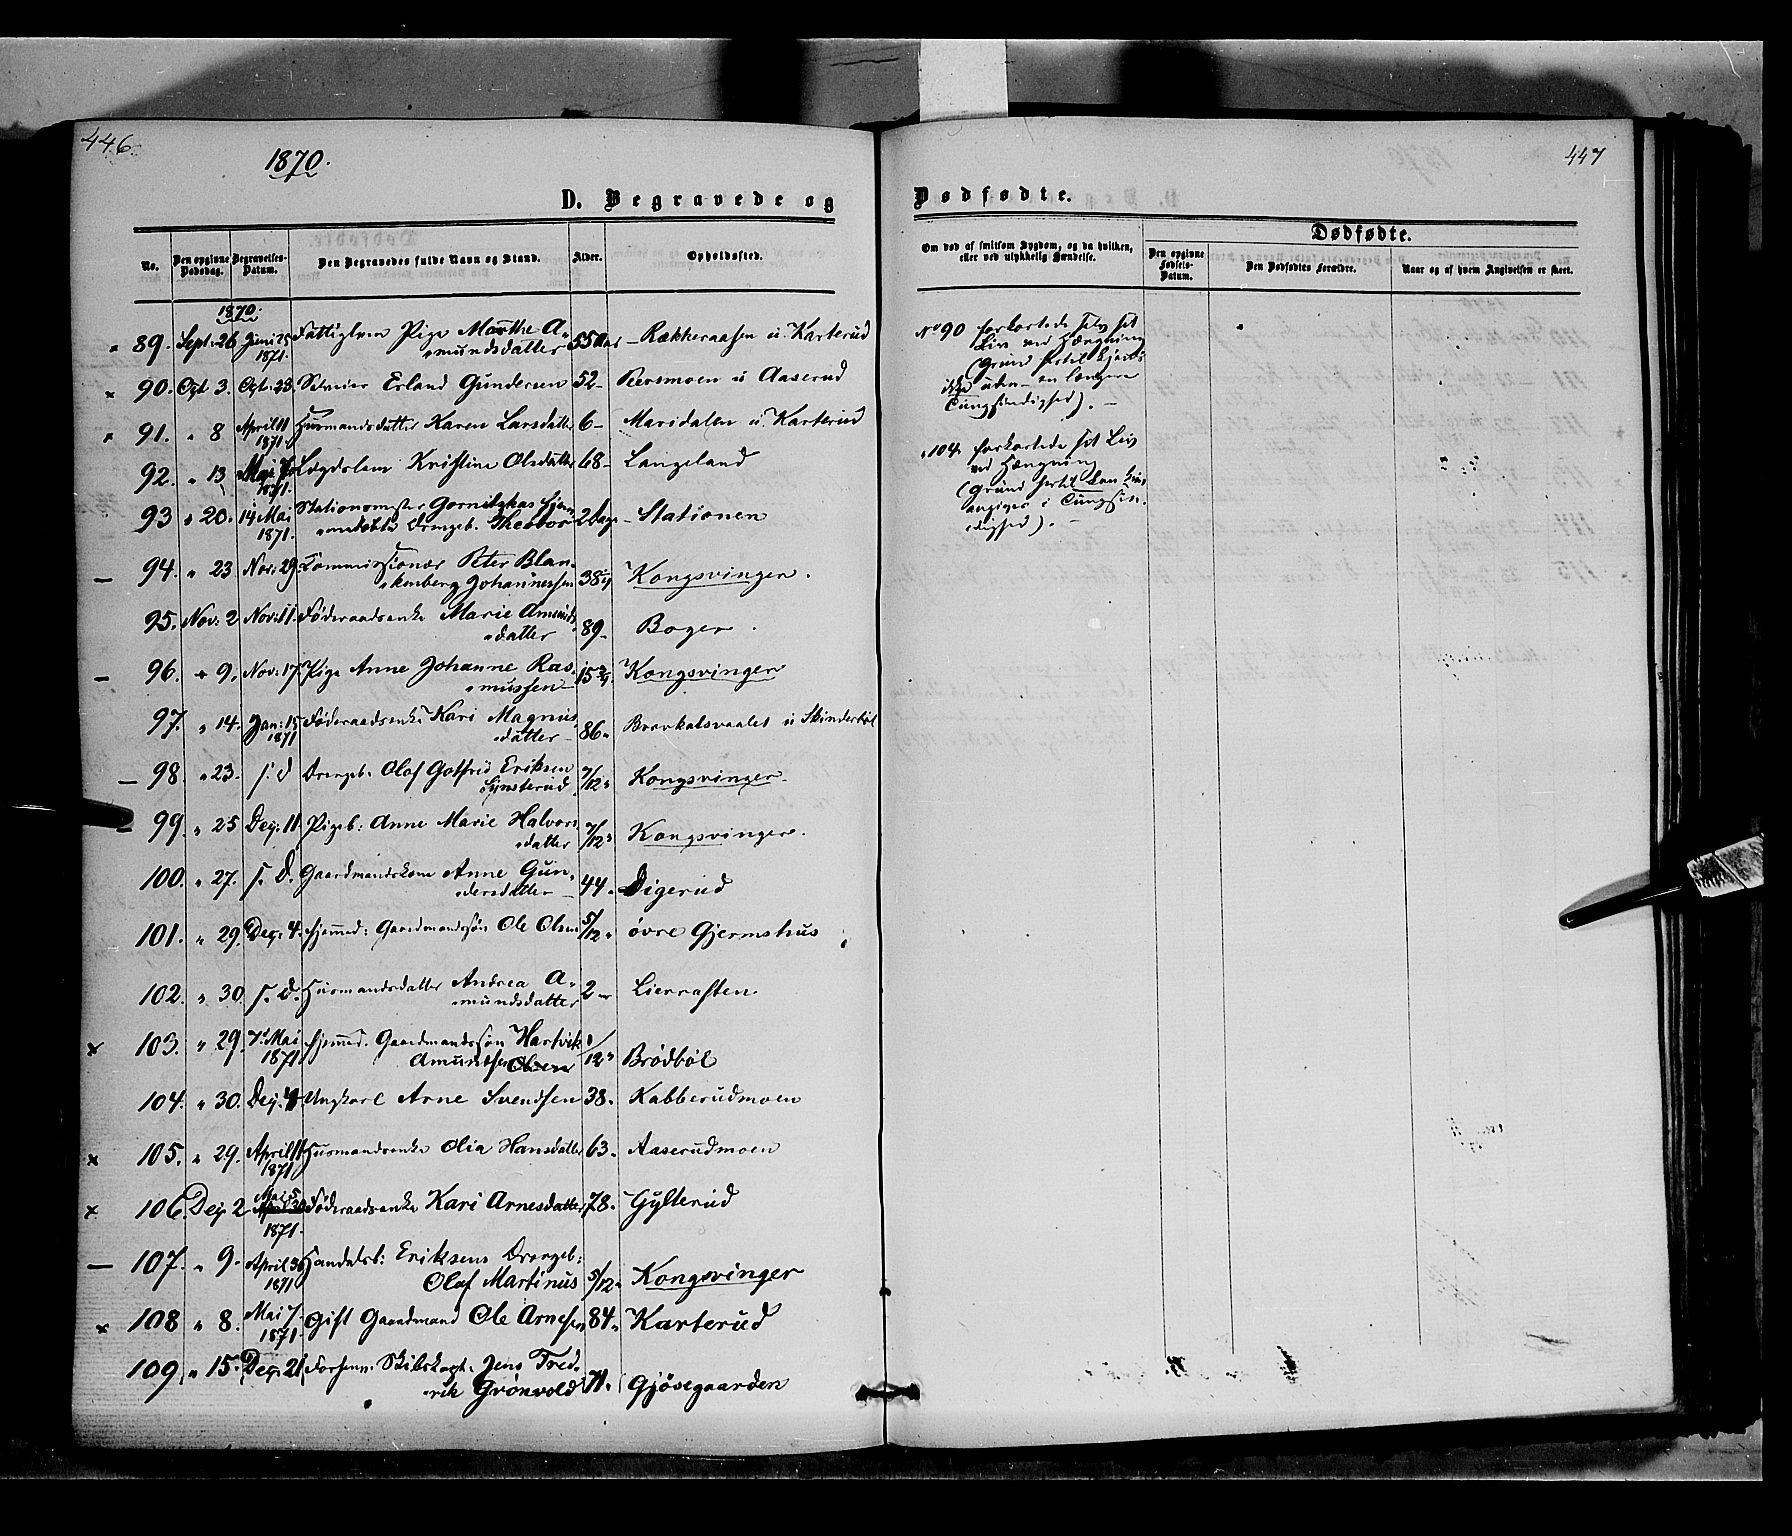 446.
1870.
D. Begravede og
No. Den opgivne Dødsdag. Begravelses-Datum. Den Begravedes fulde Navn og Stand. Alder. Opholdssted.
1870.
89. Sept: 26 Juni 25 1871. Fattiglem Pige Marthe A-
mundsdatter 55 Aar - Rækkeraasen u. Karterud
90. Oct 3. Oct: 23 Erland Gundersen 52 - Persmoen u Aaserud
91. " 8 April 11 1871. Husmandsdatter Karen Larsdatter 6 - Maridalen u. Karterud
92. " 13 Mai 1871. Lægdslem Kristine Olsdatter 68 - Langeland
93 " 20. 14 Mai 1871. Stationsmster hjem-
medøbte Drengeb. Theodor 2 Dage - Stationen
94. " 23 Nov: 29. Commissionær Peter Blan-
kenberg Johannessen 38 Kongsvinger.
95. Nov: 2 Nov: 11. Føderaadsenke Marie Amunds-
datter 89 - Boger.
96. " 9. Nov: 17. Pige Anne Johanne Ras-
mussen 15 Kongsvinger
97. " 14. Jan: 15 1871 Føderaadsenke Kari Magnus-
datter 86 " u Skinderbøl
98. " 23. s. d Drengeb: Olaf Gotfred Eriksen
7/12 " Kongsvinger
99. " 25 Dez: 11. Pigeb: Anne Marie Halvors-
datter 7/12 " Kongsvinger.
100. " 27. s. D. Gaardmandskone Anne Gun-
dersdatter 44. Digerud
101. " 29. Dez: 4. hjemmed: Gaardmandssøn Ole Olsen 5/12 " øvre Gjermshus
102. " 30. s. D. Husmandsdatter Andrea A-
mundsdatter 2 Lierrasten
103. " 29. 7d Mai 1871. hjemmed. Gaardmandssøn Hartvik
Amundsen Olsen /12 " Brödböl
104. " 30. Dez: 4. Ungkarl Arne Svendsen 38. Kabberudmoen
105. " 29. April 11 1871 Husmandsenke Olia Hansdatter 63. Aaserudmoen
106. Dez 2 Mai 5 April 30 1871. Føderaadsenke Kari Arnesdatter 78. Gylterud
107. " 9. April 30 1871 Handelsb: Eriksens Drengeb:
Olaf Martinus 5/12 " Kongsvinger
108 " 8. Mai 7. 1871. Gift Gaardmand Ole Arnesen 84 " Karterud
109 " 15. Dez: 21 Forhenv. Skibskapt. Jens Fred-
rik Grønvold 71. Gjøsegaarden
447
Dødfødte.
Om død af smitsom Sygdom, og da hvilken, eller ved ulykkelig Hændelse.
Dødfødte.
Den opgivne Fødsels-Datum. Den Dødfødtes Forældre. Naar og af hvem Angivelsen er skeet.
No 90 forkortede selv sit
Liv ved Hængning
(Grund hertil kjendes
ikke uden en længere
Tungsindighed). -
" 104. forkortede sit Liv
ved Hængning
(Grund hertil kan kun
angives i Tungsin-
dighed). -